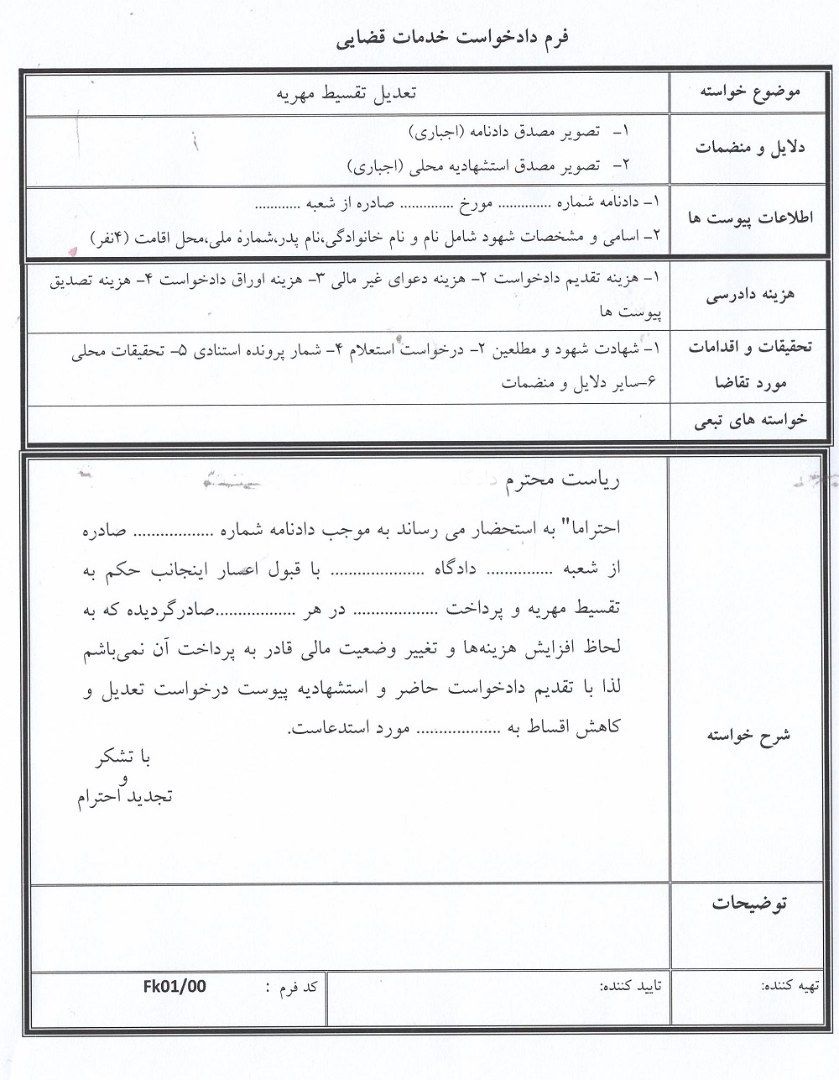 فرم دادخواست خدمات قضایی
موضوع خواسته
تعدیل تقسیط مهریه
دلایل و منضمات
۱- تصویر مصدق دادنامه (اجباری)
۲- تصویر مصدق استشهادیه محلی (اجباری)
اطلاعات پیوست ها
۱- دادنامه شماره .............. مورخ .............. صادره از شعبه ............
۲- اسامی و مشخصات شهود شامل نام و نام خانوادگی،نام پدر،شماره ملی،محل اقامت (۴نفر)
هزینه دادرسی
۱- هزینه تقدیم دادخواست ۲- هزینه دعوای غیر مالی ۳- هزینه اوراق دادخواست ۴- هزینه تصدیق
پیوست ها
تحقیقات و اقدامات
مورد تقاضا
۱- شهادت شهود و مطلعین ۲- درخواست استعلام ۴- شمار پرونده استنادی ۵- تحقیقات محلی
۶-سایر دلایل و منضمات
خواسته های تبعی
شرح خواسته
ریاست محترم
احتراما" به استحضار می رساند به موجب دادنامه شماره .................. صادره
از شعبه ............... دادگاه ..................... با قبول اعسار اینجانب حکم به
تقسیط مهریه و پرداخت ................... در هر ..................صادرگردیده که به
لحاظ افزایش هزینه‌ها و تغییر وضعیت مالی قادر به پرداخت آن نمی‌باشم
لذا با تقدیم دادخواست حاضر و استشهادیه پیوست درخواست تعدیل و
کاهش اقساط به ................... مورد استدعاست.
با تشکر
و
تجدید احترام
توضیحات
تهیه کننده:
تایید کننده:
کد فرم : Fk01/00